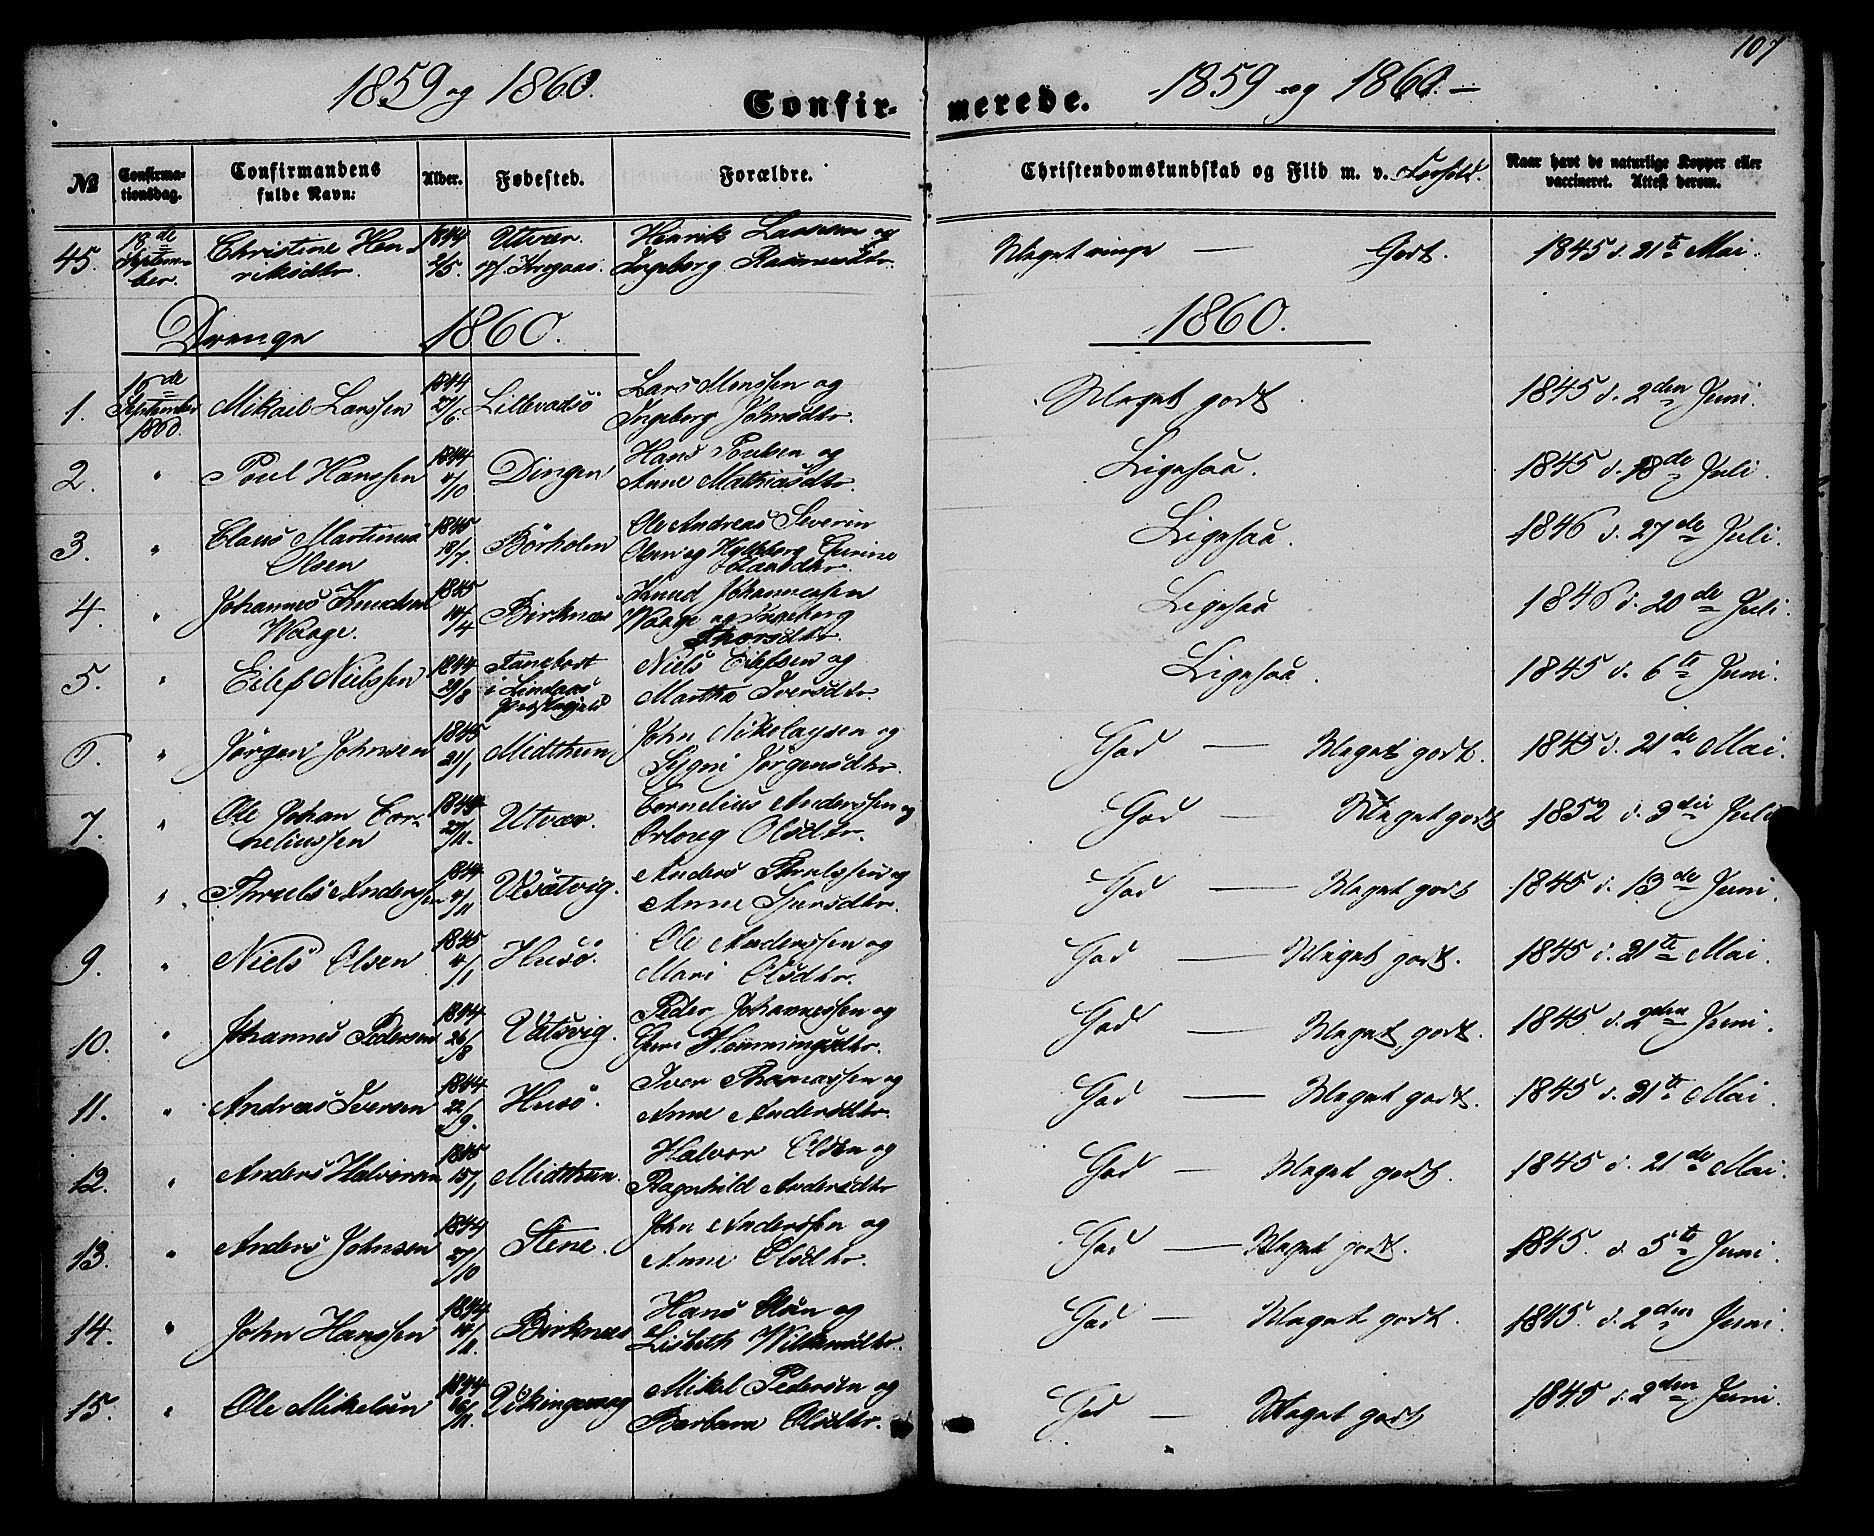 107
1859 og 1860. Confirmerede. 1859 og 1860.
№ Confirmationsdag. Confirmandens fulde Navn: Alder. Fødested. Forældre. Christendomskundskab og Flid m. v. Forhold. Naar havt de naturlige Kopper eller vaccineret. Attest derom.
45. 18de September. Christine Henriksdtr. 1844 2/5. Utvær. Henrik Larssen og Ingeborg Rasmusdtr. Meget ringe — Godt. 1845 d. 21te Mai.
Drenge 1860. 1860.
1. 16de September 1860. Mikael Larssen 1844 27/6. Lillevadsö Lars Monssen og Ingeborg Johnsdtr. Meget godt. 1845 d. 2den Juni.
2. " Poul Hanssen 1844 4/10 Dingen Hans Poulsen og Anne Mathiasdtr. Ligesaa. 1845 d. 18de Juli.
3. " Claus Martinus Olsen 1845 18/7. Börholm Ole Andreas Severin Olsen og Gurine Clausdtr. Ligesaa. 1846 d. 27de Juli.
4. " Johannes Knudsen Waage. 1845 14/4 Birknæs Knud Johannessen Waage og Ingeborg Thorsdtr. Ligesaa 1846 d. 20de Juli.
5. " Eilef Nielssen 1844 29/8 i Lindaas Præstegjeld Niels Eilefsen og Martha Iversdtr. Ligesaa. 1845 d. 6te Juni.
6. " Jörgen Johnsen 1845 21/1 Midtthun John Nikolaysen og Sygni Jörgensdtr. God — Meget godt. 1845 d. 21de Mai.
7. " Ole Johan Corneliussen 1844 27/11. Utvær. Cornelius Anderssen og Olsdtr. God — Meget godt 1852 d. 3die Juli
" Thruels Anderssen 1844 4/11 Anders Thruelssen og Anne God — Meget godt 1845 d. 13de Juni.
9. " Niels Olsen 1845 4/1 Husö. Ole Anderssen og Mari Olsdtr. God — Meget godt. 1845 d. 21te Mai.
10. " Johannes Pedersen 1844 26/8 Peder Johannessen og Guri Hemmingsdtr. God — Meget godt. 1845. d. 2den Juni.
11. " Andreas Iversen 1844 22/9. Husö. Iver Thomassen og Anne Andersdtr. God — Meget godt. 1845 d. 31te Mai.
12. " Anders Halvorsen 1845 15/1 Midtthun. Halvor Olsen og Ragnhild Andersdtr God — Meget godt. 1845 d. 21de Mai.
13. " Anders Johnsen 1844 27/10 Stene. John Anderssen og Anne Olsdtr. God — Meget godt. 1845. d. 5te Juni.
14. " John Hanssen 1844 14/11. Birknæs Hans Olsen og Lisbeth Willumsdtr. God — Meget godt. 1845. d. 2den Juni.
15. " Ole Mikelsen 1844 16/11. Vikingevaag Mikel Pedersen og Barbara Olsdtr. God — Meget godt 1845 d. 2den Juni.